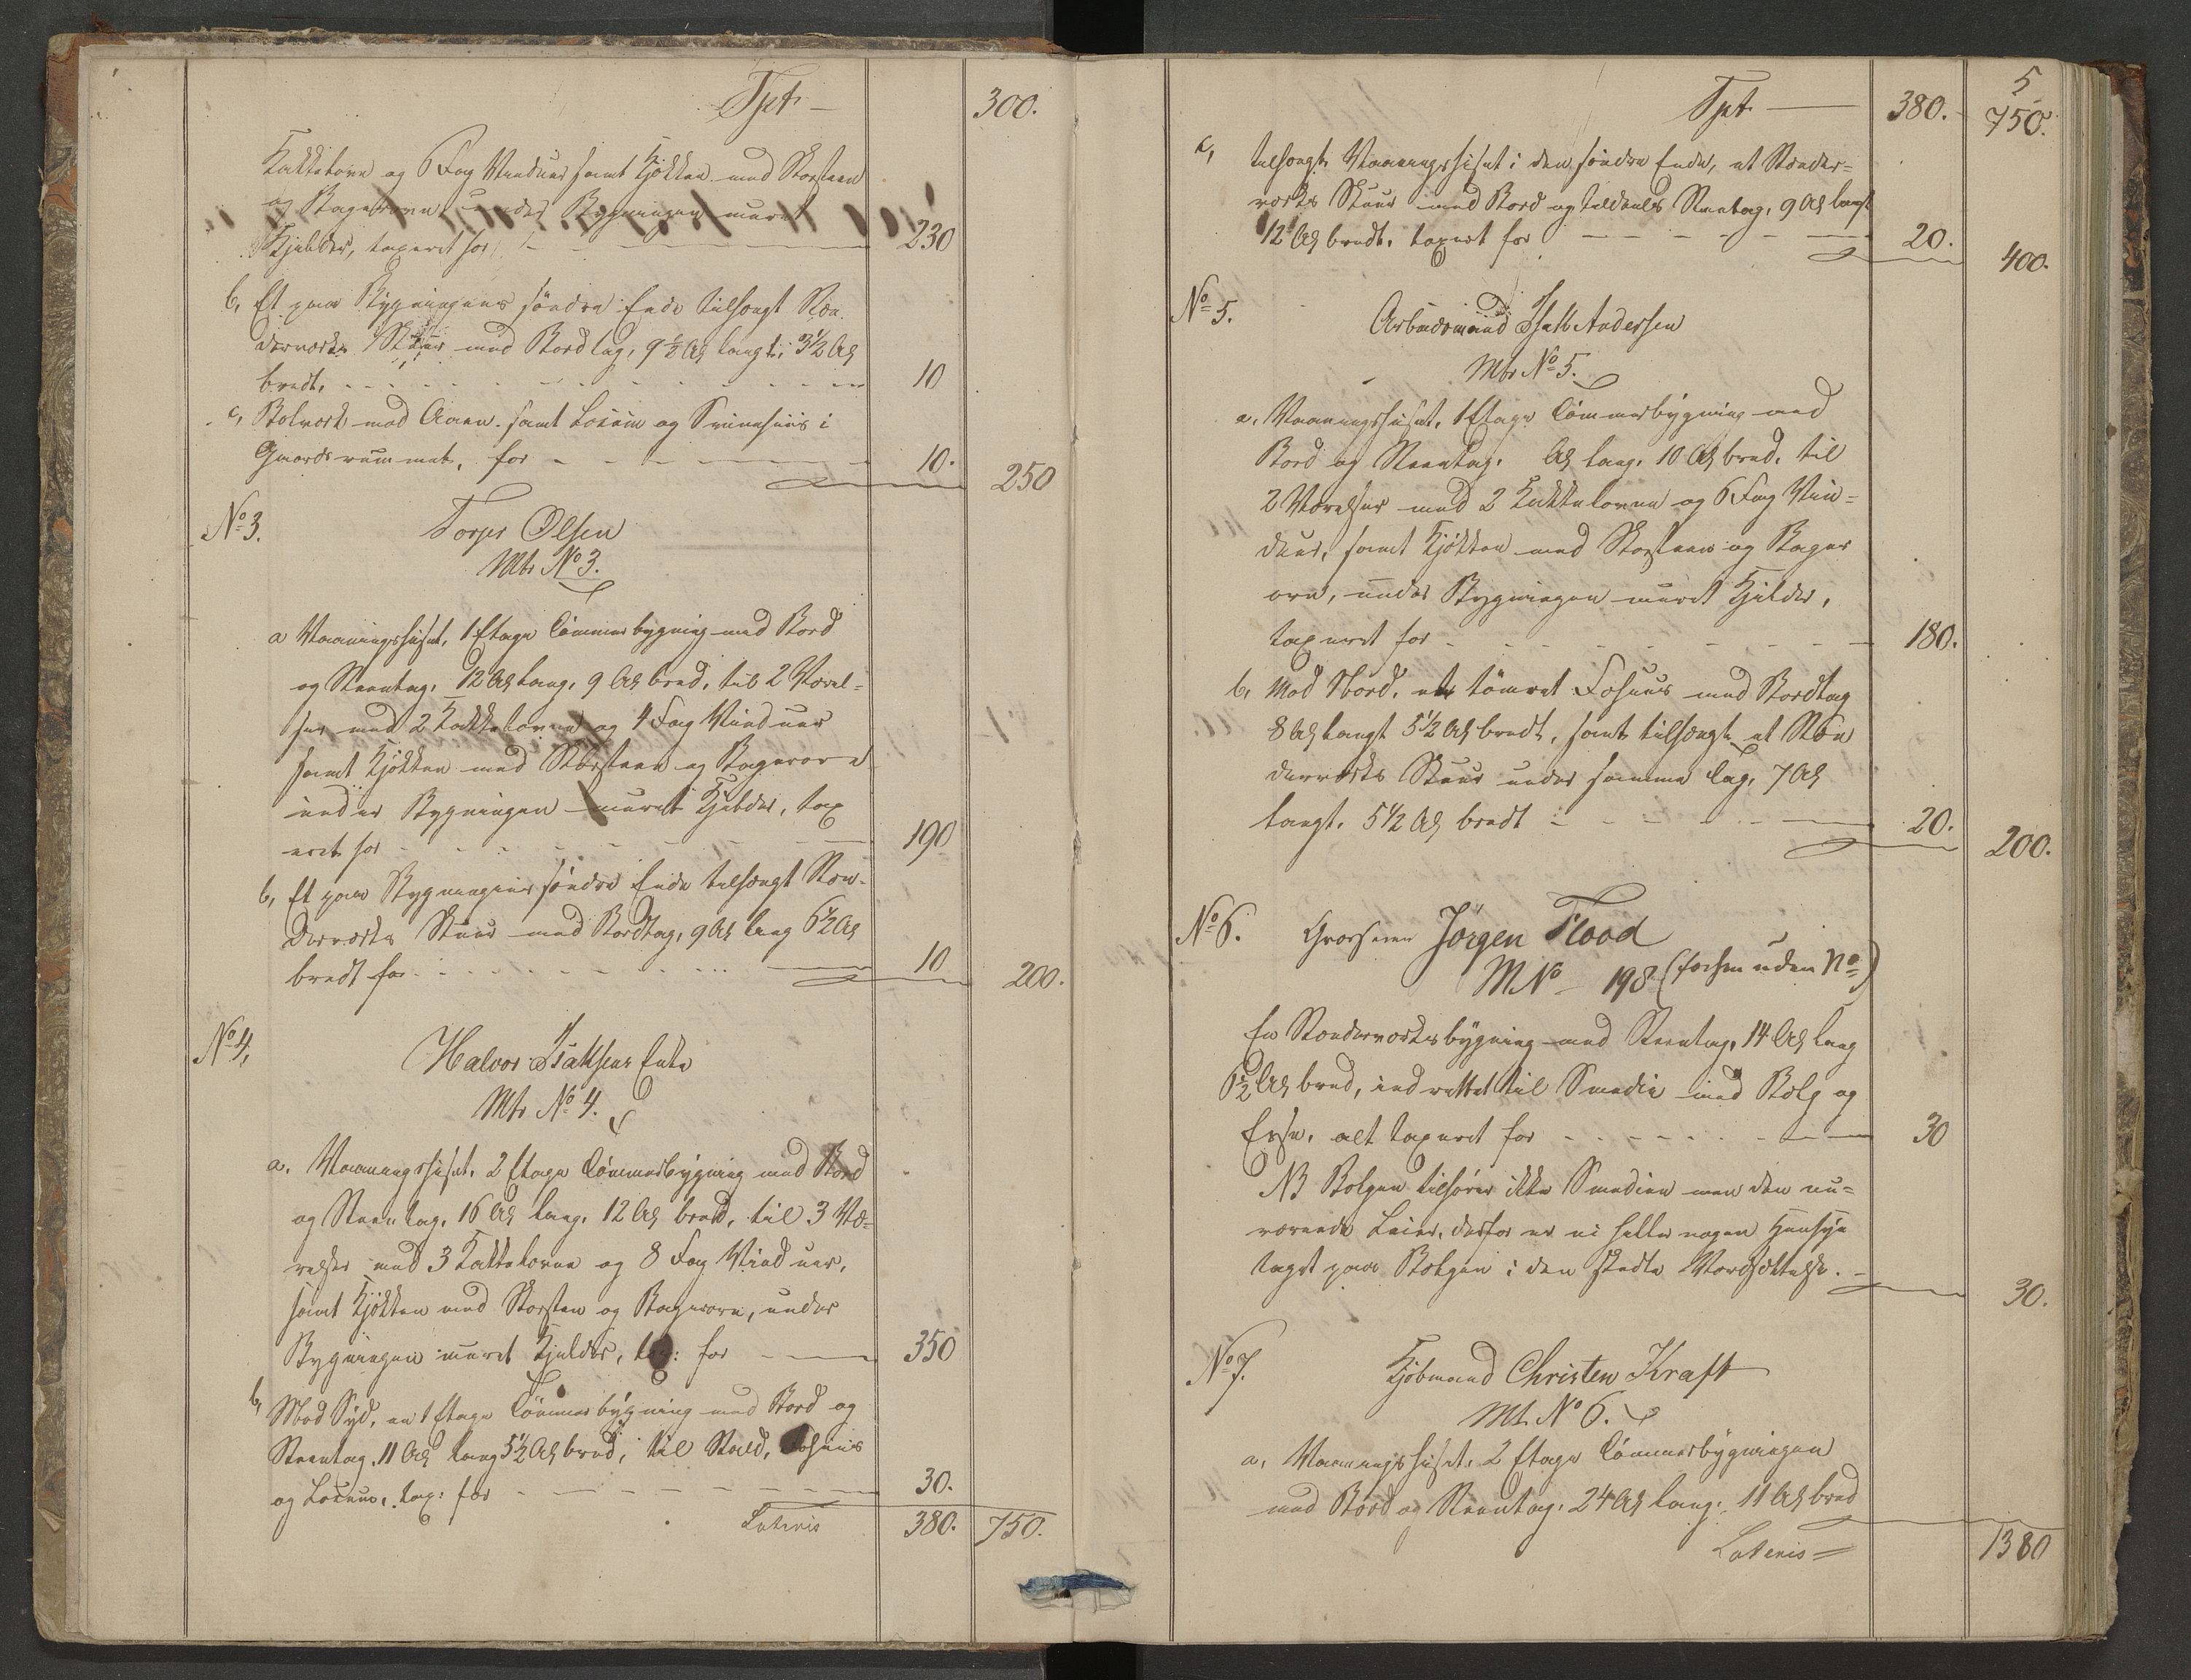 Tpt — 300.
Kakkelovn og 6 Fag Vinduer samt Kjökken med Skorsteen
og Bagerovn, under Bygningen muret
Kjelder, taxeret for — 230
b, Et paa Bygningens söndre Ende tilhængt Stæn-
derværks Skuur med Bordtag, 9½ Al langt, 3½ Al
bredt, — 10
c, Bolværk mod Aaen, samt Locum og Sviinehuus i
Gaardsrummet, for — 10. 250
No 3. Torger Olsen
Mtr No 3.
a Vaaningshuset, 1 Etage Tömmerbygning med Bord
og Steentag, 12 Al lang, 9 Al bred, til 2 Værel-
ser med 2 Kakkelovne og 4 Fag Vinduer
samt Kjökken med Skorsteen og Bagerovn
under Bygningen muret Kjelder, tax
eret for — 190
b, Et paa Bygningens söndre Ende tilhængt Stæn-
derværks Skuur med Bordtag, 9 Al lang 6½ Al
bredt for — 10 200.
No 4. Halvor Isaksens Enke
Mtr No 4.
a. Vaaningshuset, 2 Etage Tömmerbygning med Bord
og Steentag, 16 Al lang, 12 Al bred, til 3 Væ-
relser med 3 Kakkelovne og 8 Fag Vinduer,
samt Kjökken med Skorsten og Bagerovn, under
Bygningen muret Kjelder, tax: for — 350
b, Mod Syd, en 1 Etage Tömmerbygning med Bord og
Steentag, 11 Al lang 5½ Al bred, til Stald, Fohuus
og Locum, tax: for — 30.
Lateris 380. 750.
5
Tpt — 380. 750.
c, tilhængt Vaaningshuset i den söndre Ende, et Stænder-
værks Skuur med Bord og tildeels Steentag, 9 Al langt
12 Al bredt, taxeret for — 20. 400.
No 5. Arbeidsmand Isak Andersen
Mtr No 5.
a. Vaaningshuset, 1 Etage Tömmerbygning med
Bord og Steentag, Al lang, 10 Al bred, til
2 Værelser med 2 Kakkelovne og 6 Fag Vin-
duer, samt Kjökken med Skorsteen og Bager
ovn, under Bygningen muret Kjelder,
taxeret for — 180.
b, Mod Nord, et tömret Fohuus med Bordtag
8 Al langt 5½ Al bredt, samt tilhængt et Stæn
derværks Skuur under samme Tag, 7 Al
langt, 5½ Al bredt — 20. 200.
No 6. Grosserer Jörgen Flood
M No — 198 (forhen uden No)
En Stænderværksbygning med Steentag, 14 Al lang
6½ Al bred, indrettet til Smedie med Bælg og
Esse, alt taxeret for — 30
NB Bælgen tilhörer ikke Smedien men den nu-
værende Leier, derfor er ei heller nogen Hensyn
taget paa Bælgen i den skedte Værdsættelse. — 30.
No 7. Kjöbmand Christen Kraft
Mt. No 6.
a, Vaaningshuset, 2 Etage Tömmerbygningen
med Bord og Steentag, 24 Al lang, 11 Al bred
Lateris = 1380